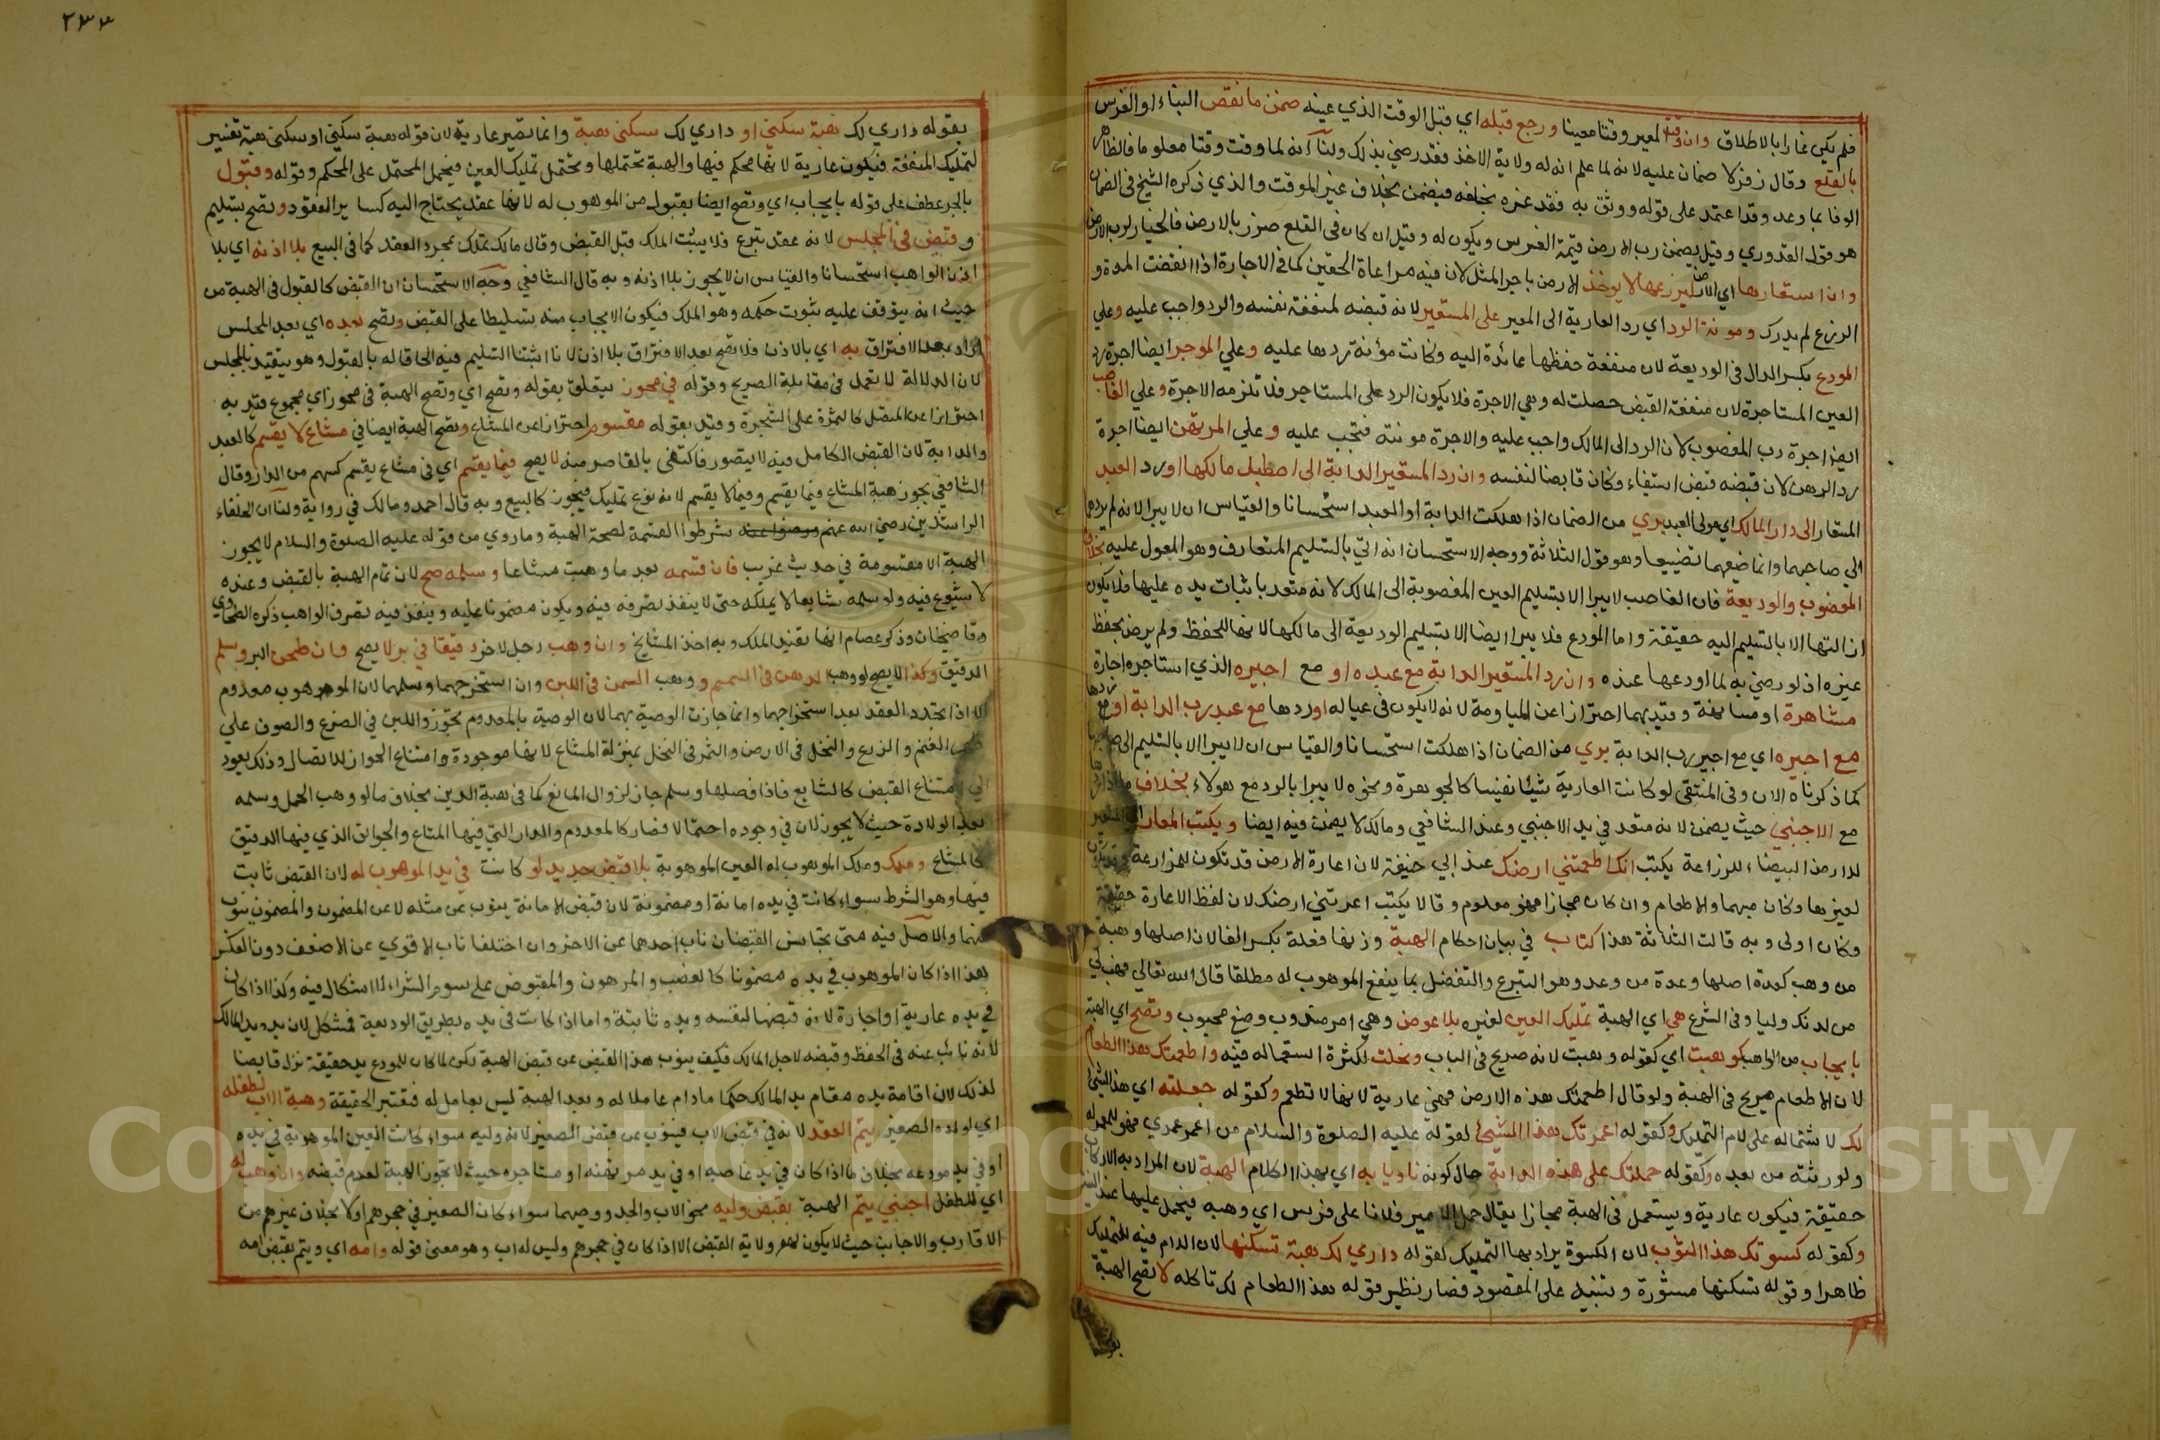 فلم يكن غارا بالاطلاق وان وقت المعير وقتا معينا ورجع قبله اي قبل الوقت الذي عينه ضمن ما نقص البناء او الغرس
بالقلع وقال زفر لا ضمان عليه لانه لما علم ان له ولاية الاخذ فقد رضي بذلك ولنا انه لما وقت وقتا معلوما فالظاهر
الوفا بما وعد وقد اعتمد على قوله ووثق به فقد غره بخلفه فيضمن بخلاف غير الموقت والذي ذكره الشيخ في الضمان
هو قول القدوري وقيل يضمن رب الارض قيمة الغرس ويكون له وقيل ان كان في القلع ضرر بالارض فالخيار لرب الارض
وان استعارها اي الارض ليزرعها لا يوخذ الارض باجر المثل لان فيه مراعاة الحقين كما في الاجارة اذا انقضت المدة و
الزرع لم يدرك ومونة الرد اي رد العارية الى المعير على المستعير لانه قبضه لمنفعة نفسه والرد واجب عليه وعلي
المودع بكسر الدال في الوديعة لان منفعة حفظها عائدة اليه وكانت مؤنة ردها عليه وعلي الموجر ايضا اجرة رد
العين المستاجرة لان منفعة القبض حصلت له وهي الاجرة فلا يكون الرد على المستاجر فلا تلزمه الاجرة وعلي الغاصب
ايضا اجرة رب المغصوب لان الرد الى المالك واجب عليه والاجرة مونته فتجب عليه وعلي المرتهن ايضا اجرة
رد الرهن لان قبضه قبض استيفاء وكان قابضا لنفسه وان رد المستعير الدابة الى اصطبل مالكها او رد العبد
المستعار الى دار المالك اي مولى العبد بري من الضمان اذا هلكت الدابة او العبد استحسانا والقياس ان لا يبرا لانه لم يردها
الي صاحبها وانما ضيعهما تضييعا وهو قول الثلاثة ووجه الاستحسان انه اتي بالتسليم المتعارف وهو المعول عليه بخلاف
المغصوب والوديعة فان الغاصب لا يبرا الا بتسليم العين المغصوبة الى المالك لانه متعد باثبات يده عليها فلا يكون
ازالتها الا بالتسليم اليه حقيقة واما المودع فلا يبرا ايضا الا بتسليم الوديعة الى مالكها لانها للحفظ ولم يرض بحفظ
غيره اذ لو رضي به لما اودعها عنده وان رد المستعير الدابة مع عبده او مع اجيره الذي استاجره اجارة
مشاهرة او مسانهة وقيد بهما احترازا عن المياومة لانه لا يكون في عياله او ردها مع عبد رب الدابة او ردها
مع اجيره اي مع اجير رب الدابة بري من الضمان اذا هلكت استحسانا والقياس ان لا يبرا الا بالتسليم الى صاحبها
كما ذكرناه الان وفي المنتقى لو كانت العارية شيئا نفيسا كالجوهرة ونحوه لا يبرا بالرد مع هولاء بخلاف ما اذا ردها
مع الاجنبي حيث يضمن لانه متعد في يد الاجنبي وعند الشافعي ومالك لا يضمن فيه ايضا ويكتب المعار اي المستعير
للارض البيضاء للزراعة يكتب انك اطعمتني ارضك عند ابي حنيفة لان اعارة الارض قد تكون للزراعة
لغيرها وكان مبهما والاطعام وان كان مجازا فهو معلوم وقالا يكتب اعرتني ارضك لان لفظ الاعارة حقيقة
وكان اولى وبه قالت الثلاثة هذا كتاب في بيان احكام الهبة وزنها فعلة بكسر الفا لان اصلها وهبة
من وهب كعدة اصلها وعدة من وعد وهو التبرع والتفضل بما ينفع الموهوب له مطلقا قال الله تعالي فهب لي
من لدنك وليا وفي الشرع هي اي الهبة تمليك العين لغيره بلا عوض وهي امر مندوب وصنع محبوب وتصح اي الهبة
بايجاب من الواهب كوهبت اي كقوله وهبت لانه صريح في الباب ونحلت لكثرة استعماله فيه واطعمتك هذا الطعام
لان الاطعام صريح في الهبة ولو قال اطعمتك هذه الارض فهي عارية لانها لا تطعم وكقوله جعلته اي هذا الشئ
لك لاشتماله على لام التمليك وكقوله اعمرتك هذا الشيئ لقوله عليه الصلوة والسلام من اعمر عمري فهو للمعمر له
ولورثته من بعده وكقوله حملتك على هذه الدابة حال كونه ناويا به اي بهذا الكلام الهبة لان المراد به الاركاب
حقيقة فيكون عارية ويستعمل في الهبة مجازا يقال حمل الامير فلانا على فرس اي وهبه فيحمل عليها عند النية
وكقوله كسوتك هذا الثوب لان الكسوة يراد بها التمليك لقوله داري لك هبة تسكنها لان الدام فيه للتمليك
ظاهرا وقوله تسكنها مشورة وتنبيه على المقصود فصار نظير قوله هذا الطعام لك تاكله لا تصح الهبة
بقوله
٢٣٣
بقوله داري لك هبة سكني او داري لك سكنى هبة وانما تصير عارية لان قوله هبة سكني او سكنى هبة تفسير
لتمليك المنفعة فيكون عارية لانها محكم فيها والهبة تحتملها وتحتمل تمليك العين فيحمل المحتمل على المحكم وقوله وقبول
بالجر عطف على قوله بايجاب اي وتصح ايضا بقبول من الموهوب له لانها عقد يحتاج اليه كساير العقود وتصح بتسليم
وقبض في المجلس لانه عقد تبرع فلا يثبت الملك قبل القبض وقال مالك تملك بمجرد العقد كما في البيع بلا اذنه اي بلا
اذن الواهب استحسانا والقياس ان لا يجوز بلا اذنه وبه قال الشافعي وجه الاستحسان ان القبض كالقبول في الهبة من
حيث انه يتوقف عليه ثبوت حكمه وهو الملك فيكون الايجاب منه تسليطا على القبض وتصح بعده اي بعد المجلس
اراد بعد الافتراق به اي بالاذن فلا تصح بعد الافتراق بلا اذن لانا اثبتنا التسليم فيه الحاقا له بالقبول وهو يتقيد بالمجلس
لان الدلالة لا تعمل في مقابلة الصريح وقوله في محوز يتعلق بقوله وتصح اي وتصح الهبة في محوز اي مجموع قيد به
احترازا عن المتصل كالثمرة على الشجرة وقيد بقوله مقسوم احترازا عن المشاع وتصح الهبة ايضا في مشاع لا يقسم كالعبد
والدابة لان القبض الكامل فيه لا يتصور فاكتفي بالقاصر منه لا يصح فيما يقسم اي في مشاع يقسم كسهم من الدار وقال
الشافعي يجوز هبة المشاع فيما يقسم وفيما لا يقسم لانه نوع تمليك فيجوز كالبيع وبه قال احمد ومالك في رواية ولنا ان الخلفاء
الراشدين رضي الله عنهم شرطوا القسمة لصحة الهبة وما روي من قوله عليه الصلوة والسلام لا يجوز
الهبة الا مقسومة في حديث غريب فان قسمه بعد ما وهبت مشاعا وسلمه صح لان تمام الهبة بالقبض وعنده
لا شيوع فيه ولو سلمه شايعا لا يملكه حتى لا ينفذ تصرفه فيه ويكون مضمونا عليه وينفذ فيه تصرف الواهب ذكره الطحاوي
وقاضيخان وذكر عصام انها تفيد الملك وبه اخذ المشايخ وان وهب رجل لاخر دقيقا في بر لا يصح وان طحن البر وسلم
الدقيق وكذا لا يصح لو وهب الدهن في السمسم ووهب السمن في اللبن وان استخرجهما وسلمهما لان الموهوب معدوم
الا اذا تجدد العقد بعد استخراجهما وانما جازت الوصية بهما لان الوصية بالمعدوم تجوز واللبن في الضرع والصوف علي
ظهر الغنم والزرع والنخل في الارض والثمر في النخل بمنزلة المشاع لانها موجودة وامتناع الجواز للاتصال وذلك يعود
الي امتناع القبض كالشايع فاذا فصلها وسلم جاز لزوال المانع كما في هبة الدين بخلاف ما لو وهب الحمل وسلمه
بعد الولادة حيث لا يجوز لان في وجوده احتمالا فصار كالمعدوم والدار التي فيها المتاع والجوالق الذي فيها الدقيق
كالمشاع وملك وملك الموهوب له العين الموهوبة بلا قبض جديد لو كانت في يد الموهوب له لان القبض ثابت
فيها وهو الشرط سواء كانت في يده امانة او مضمونة لان قبض الامانة ينوب عن مثله لا عن المضمون والمضمون ينوب
عنهما والاصل فيه متى تجانس القبضان ناب احدهما عن الاخر وان اختلفا ناب الاقوي عن الاضعف دون العكس
بهذا اذا كان الموهوب في يده مضمونا كالغصب والمرهون والمقبوض على سوم الشراء لا اشكال فيه وكذا اذا كان
في يده عارية او اجارة لانه قبضها لنفسه ويده ثابتة واما اذا كانت في يده بطريق الوديعة فمشكل لان يده يد المالك
لانه نائب عنه في الحفظ وقبضه لاجل المالك فكيف ينوب هذا القبض عن قبض الهبة لكن لما كان للمودع يد حقيقة نزل قابضا
لذلك لان اقامة يده مقام يد المالك حكما مادام عاملا له وبعد الهبة ليس بعامل له فتعتبر الحقيقة وهبة الاب لطفله
اي لولده الصغير يتم العقد لانه في قبض الاب فينوب عن قبض الصغير لانه وليه سواء كانت العين الموهوبة في يده
او في يد مودعه بخلاف ما اذا كان في يد غاصبه او في يد مرتهنه او مستاجره حيث لا تجوز الهبة لعدم قبضه وان وهب له
اي للطفل اجنبي يتم الهبة بقبض وليه نحو الاب والجد ووصيهما سواء كان الصغير في حجرهم اولا بخلاف غيرهم من
الاقارب والاجانب حيث لا يكون لهم ولاية القبض الا اذا كان في حجرهم وليس له اب وهو معنى قوله وامه اي ويتم بقبض امه
Copyright © King Saud University